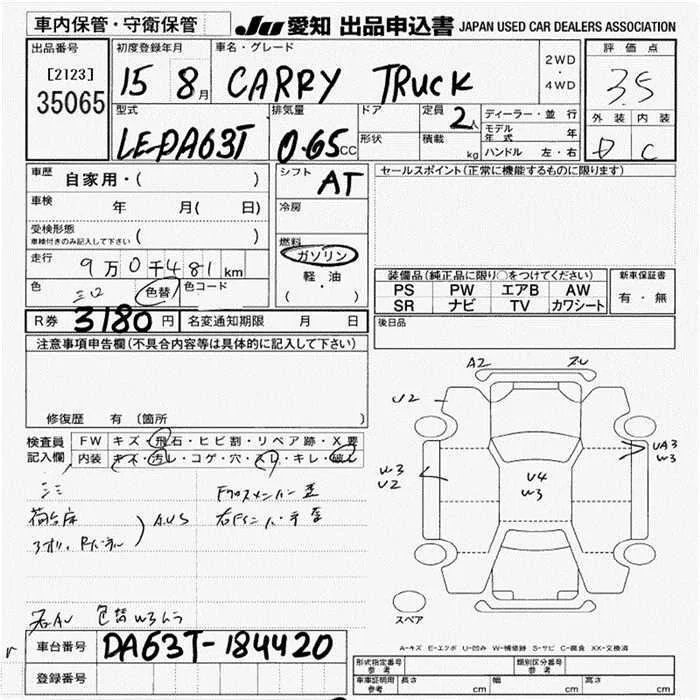 車内保管・守衛保管 JU 愛知 出品申込書 JAPAN USED CAR DEALERS ASSOCIATION
出品番号 [2123] 35065
初度登録年月 15 8月
車名・グレード CARRY TRUCK
2WD・4WD
評価点 3.5
外装 D 内装 C
型式 LE-DA63T
排気量 0.65CC
ドア 定員 2人
形状 積載 kg
ディーラー・並行
モデル年式 年
ハンドル 左・右
車歴 自家用・( )
車検 年 月( 日)
受検形態 ( )
車検付きのみ記入して下さい
走行 9万0千481km
色 色替 色コード
シフト AT
冷房
燃料 ガソリン・軽・油
( ・ )
セールスポイント(正常に機能するものに限ります)
装備品(純正品に限り○をつけてください)
PS PW エアB AW
SR ナビ TV カワシート
新車保証書 有・無
R券 3180円 名変通知期限 月 日
後日品
注意事項申告欄(不具合内容等は具体的に記入して下さい)
修復歴 有 〔箇所 〕
検査員記入欄
FW キズ・飛石・ヒビ割・リペア跡・X要
内装 キズ・汚レ・コゲ・穴・スレ・キレ・破レ
荷台床
A.U.S
A2
U2
UA3
W3
W3
U2
U4
W3
スペア
A-キズ E-エクボ U-凹み W-補修跡 S-サビ C-腐食 XX-交換済
車台番号 DA63T-184420
登録番号
形式指定番号 参考 類別区分番号 参考
車庫証明用 参考 長さ cm 幅 cm 高さ cm